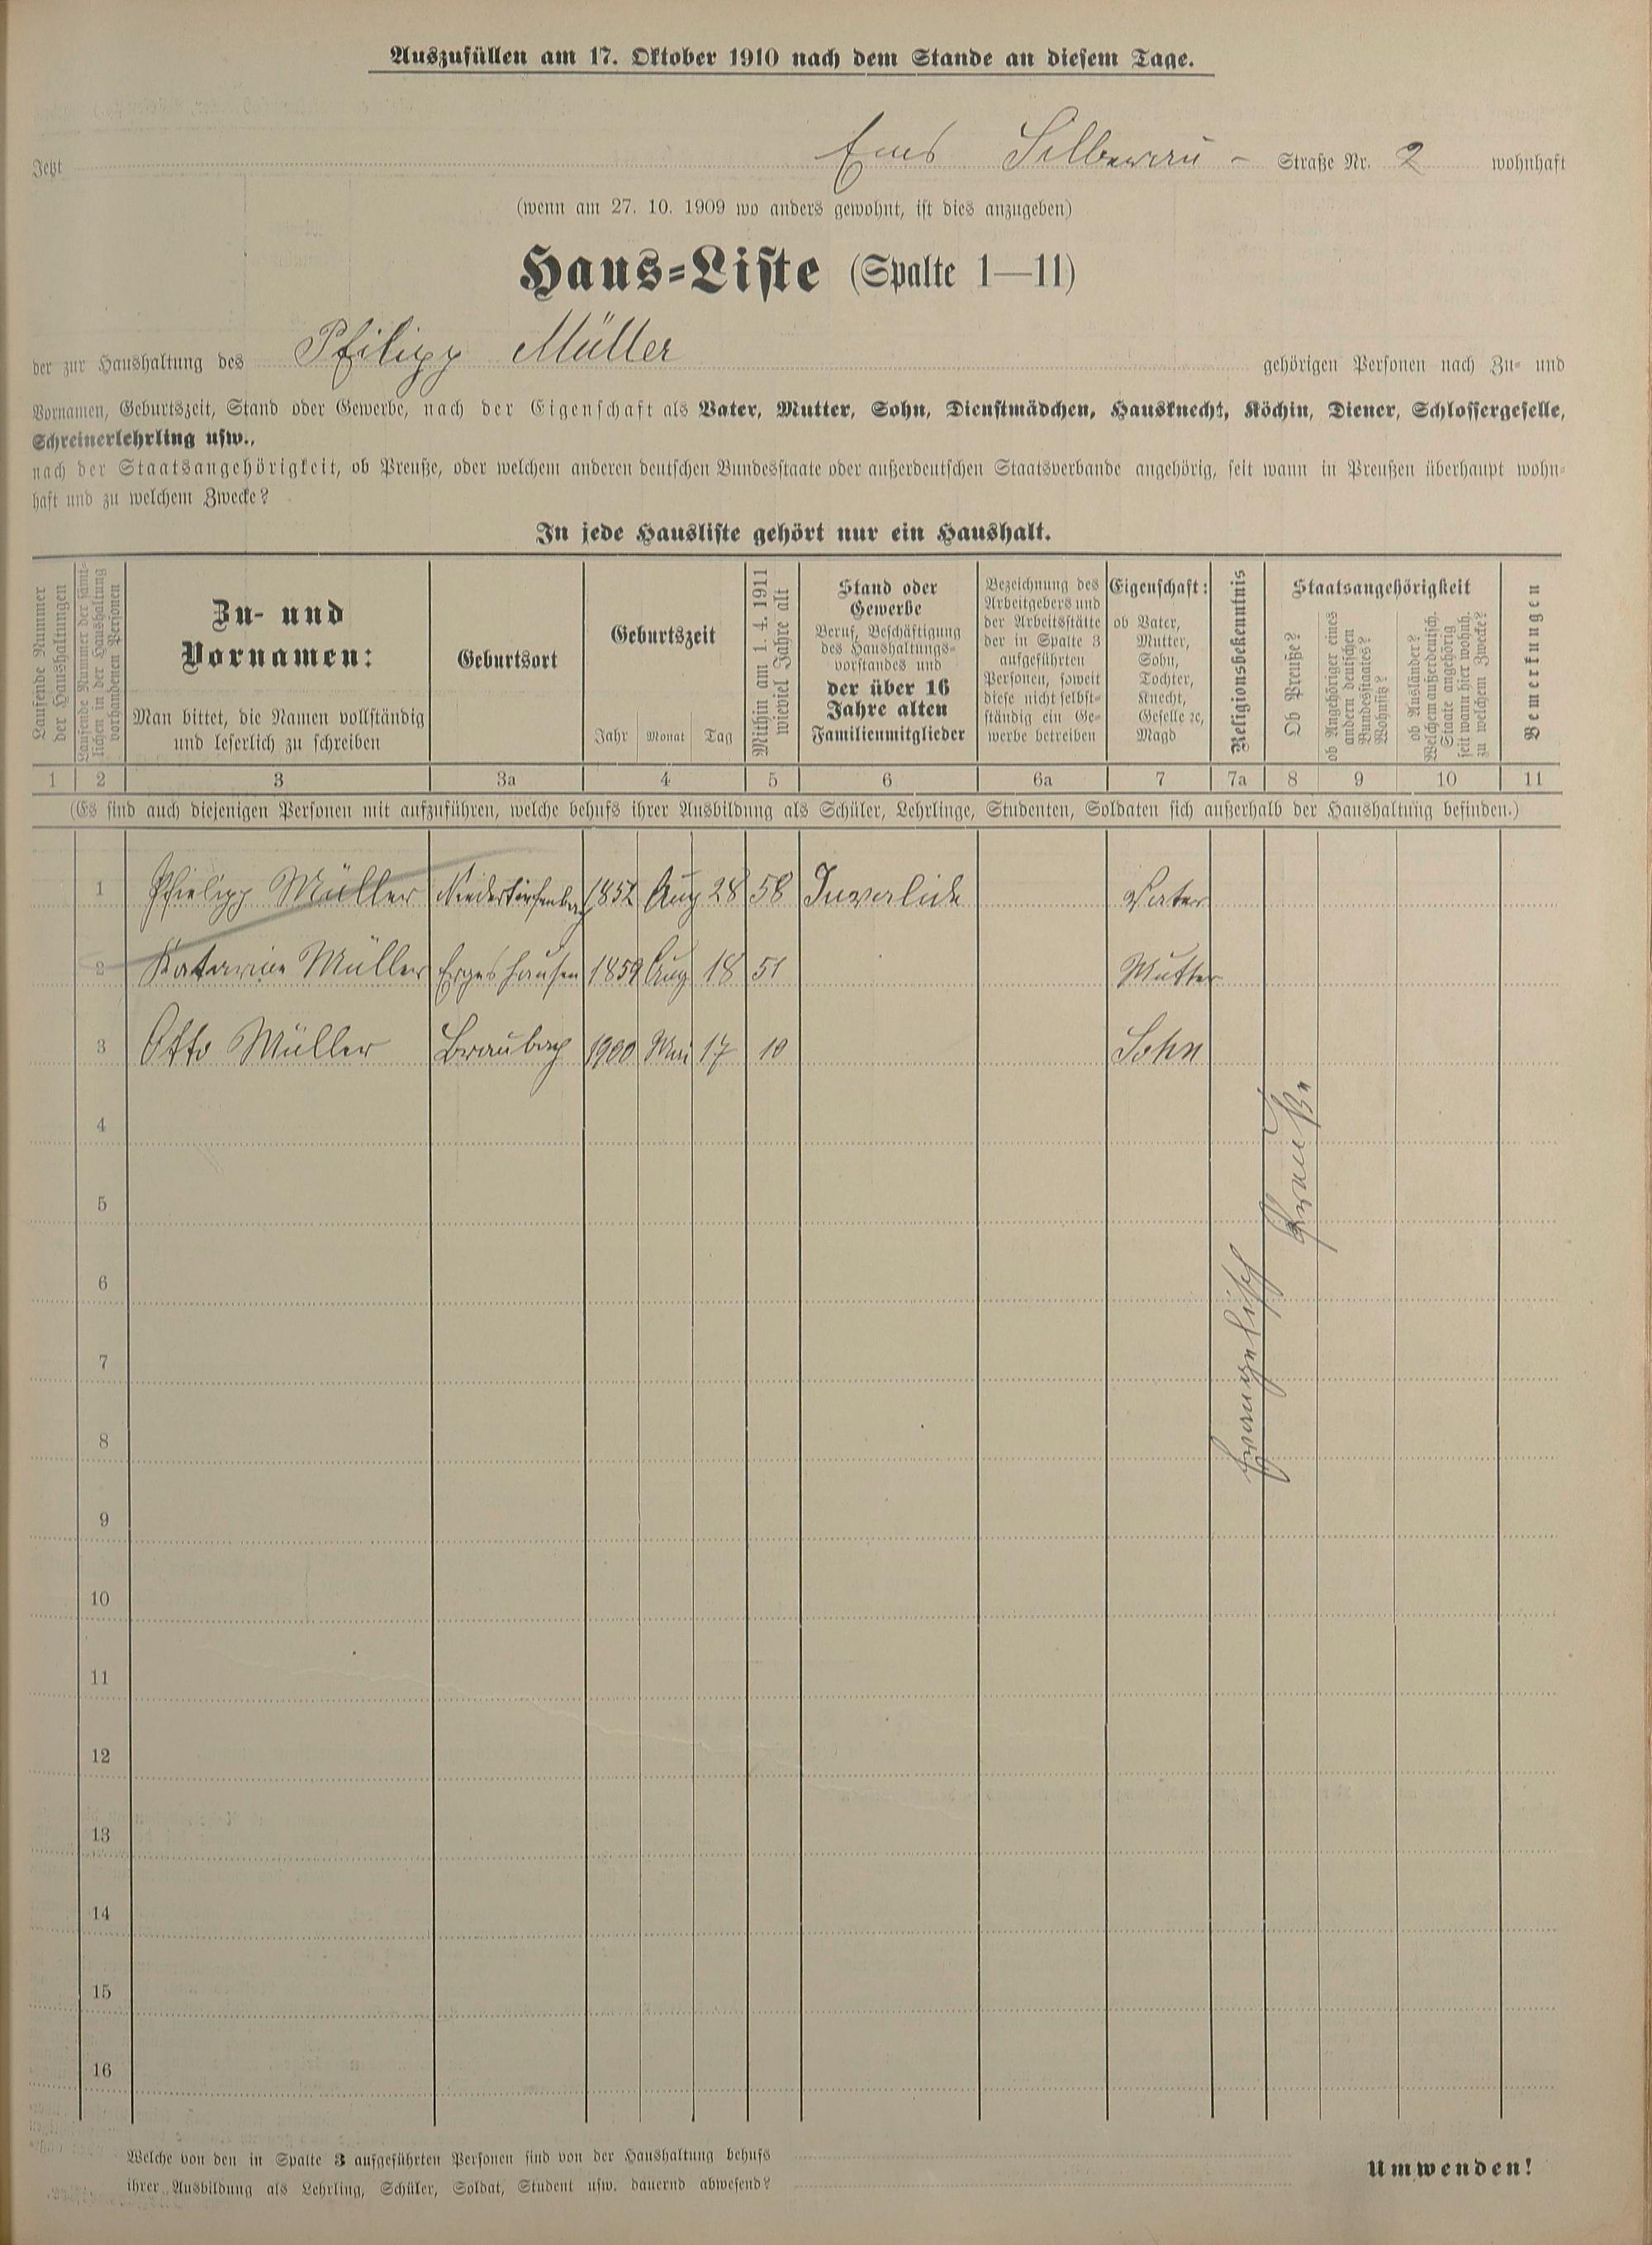 Auszufüllen am 17. Oktober 1910 nach dem Stande an diesem Tage.
Jetzt Ems Silberau - Straße Nr. 2 wohnhaft
(wenn am 27. 10. 1909 wo anders gewohnt, ist dies anzugeben)
Haus-Liste (Spalte 1—11)
der zur Haushaltung des Philipp Müller gehörigen Personen nach Zu- und
Vornamen, Geburtszeit, Stand oder Gewerbe, nach der Eigenschaft als Vater, Mutter, Sohn, Dienstmädchen, Hausknecht, Köchin, Diener, Schlossergeselle,
Schreinerlehrling usw.,
nach der Staatsangehörigkeit, ob Preuße, oder welchem anderen deutschen Bundesstaate oder außerdeutschen Staatsverbande angehörig, seit wann in Preußen überhaupt wohn-
haft und zu welchem Zwecke?
In jede Hausliste gehört nur ein Haushalt.
Laufende Nummer
der Haushaltungen
Laufende Nummer der sämt-
lichen in der Haushaltung
vorhandenen Personen
Zu- und
Vornamen:
Man bittet, die Namen vollständig
und leserlich zu schreiben
Geburtsort
Geburtszeit
Jahr Monat Tag
Mithin am 1. 4. 1911
wieviel Jahre alt
Stand oder
Gewerbe
Beruf, Beschäftigung
des Haushaltungs-
vorstandes und
der über 16
Jahre alten
Familienmitglieder
Bezeichnung des
Arbeitgebers und
der Arbeitsstätte
der in Spalte 3
aufgeführten
Personen, soweit
diese nicht selbst-
ständig ein Ge-
werbe betreiben
Eigenschaft:
ob Vater,
Mutter,
Sohn,
Tochter,
Knecht,
Geselle ec,
Magd
Religionsbekenntnis
Staatsangehörigkeit
Ob Preuße?
ob Angehöriger eines
andern deutschen
Bundesstaates?
Wohnsitz?
ob Ausländer?
Welchem außerdeutsch.
Staate angehörig
seit wann hier wohnh.
zu welchem Zwecke?
Bemerkungen
1 2 3 3a 4 5 6 6a 7 7a 8 9 10 11
(Es sind auch diejenigen Personen mit aufzuführen, welche behufs ihrer Ausbildung als Schüler, Lehrlinge, Studenten, Soldaten sich außerhalb der Haushaltung befinden.)
1 Philipp Müller 1852 Aug 28 58 Invalide Vater
2 Katarina Müller Ergeshausen 1859 Aug 18 51 Mutter
3 Otto Müller Braubach 1900 Mai 17 10 Sohn
Preuße
Evangelisch
4
5
6
7
8
9
10
11
12
13
14
15
16
Welche von den in Spalte 3 aufgeführten Personen sind von der Haushaltung behufs
ihrer Ausbildung als Lehrling, Schüler, Soldat, Student usw. dauernd abwesend?
Umwenden!